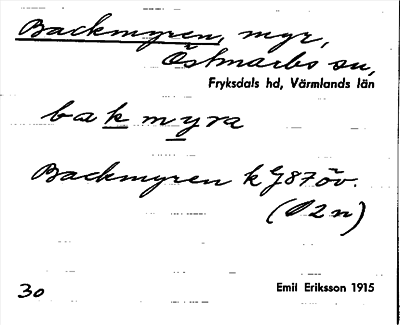 Backmyren, myr,
Östmarks sn,
Fryksdals hd, Värmlands län
bakmyra
Backmyren k G87öv.
(O2n)
30
Emil Eriksson 1915